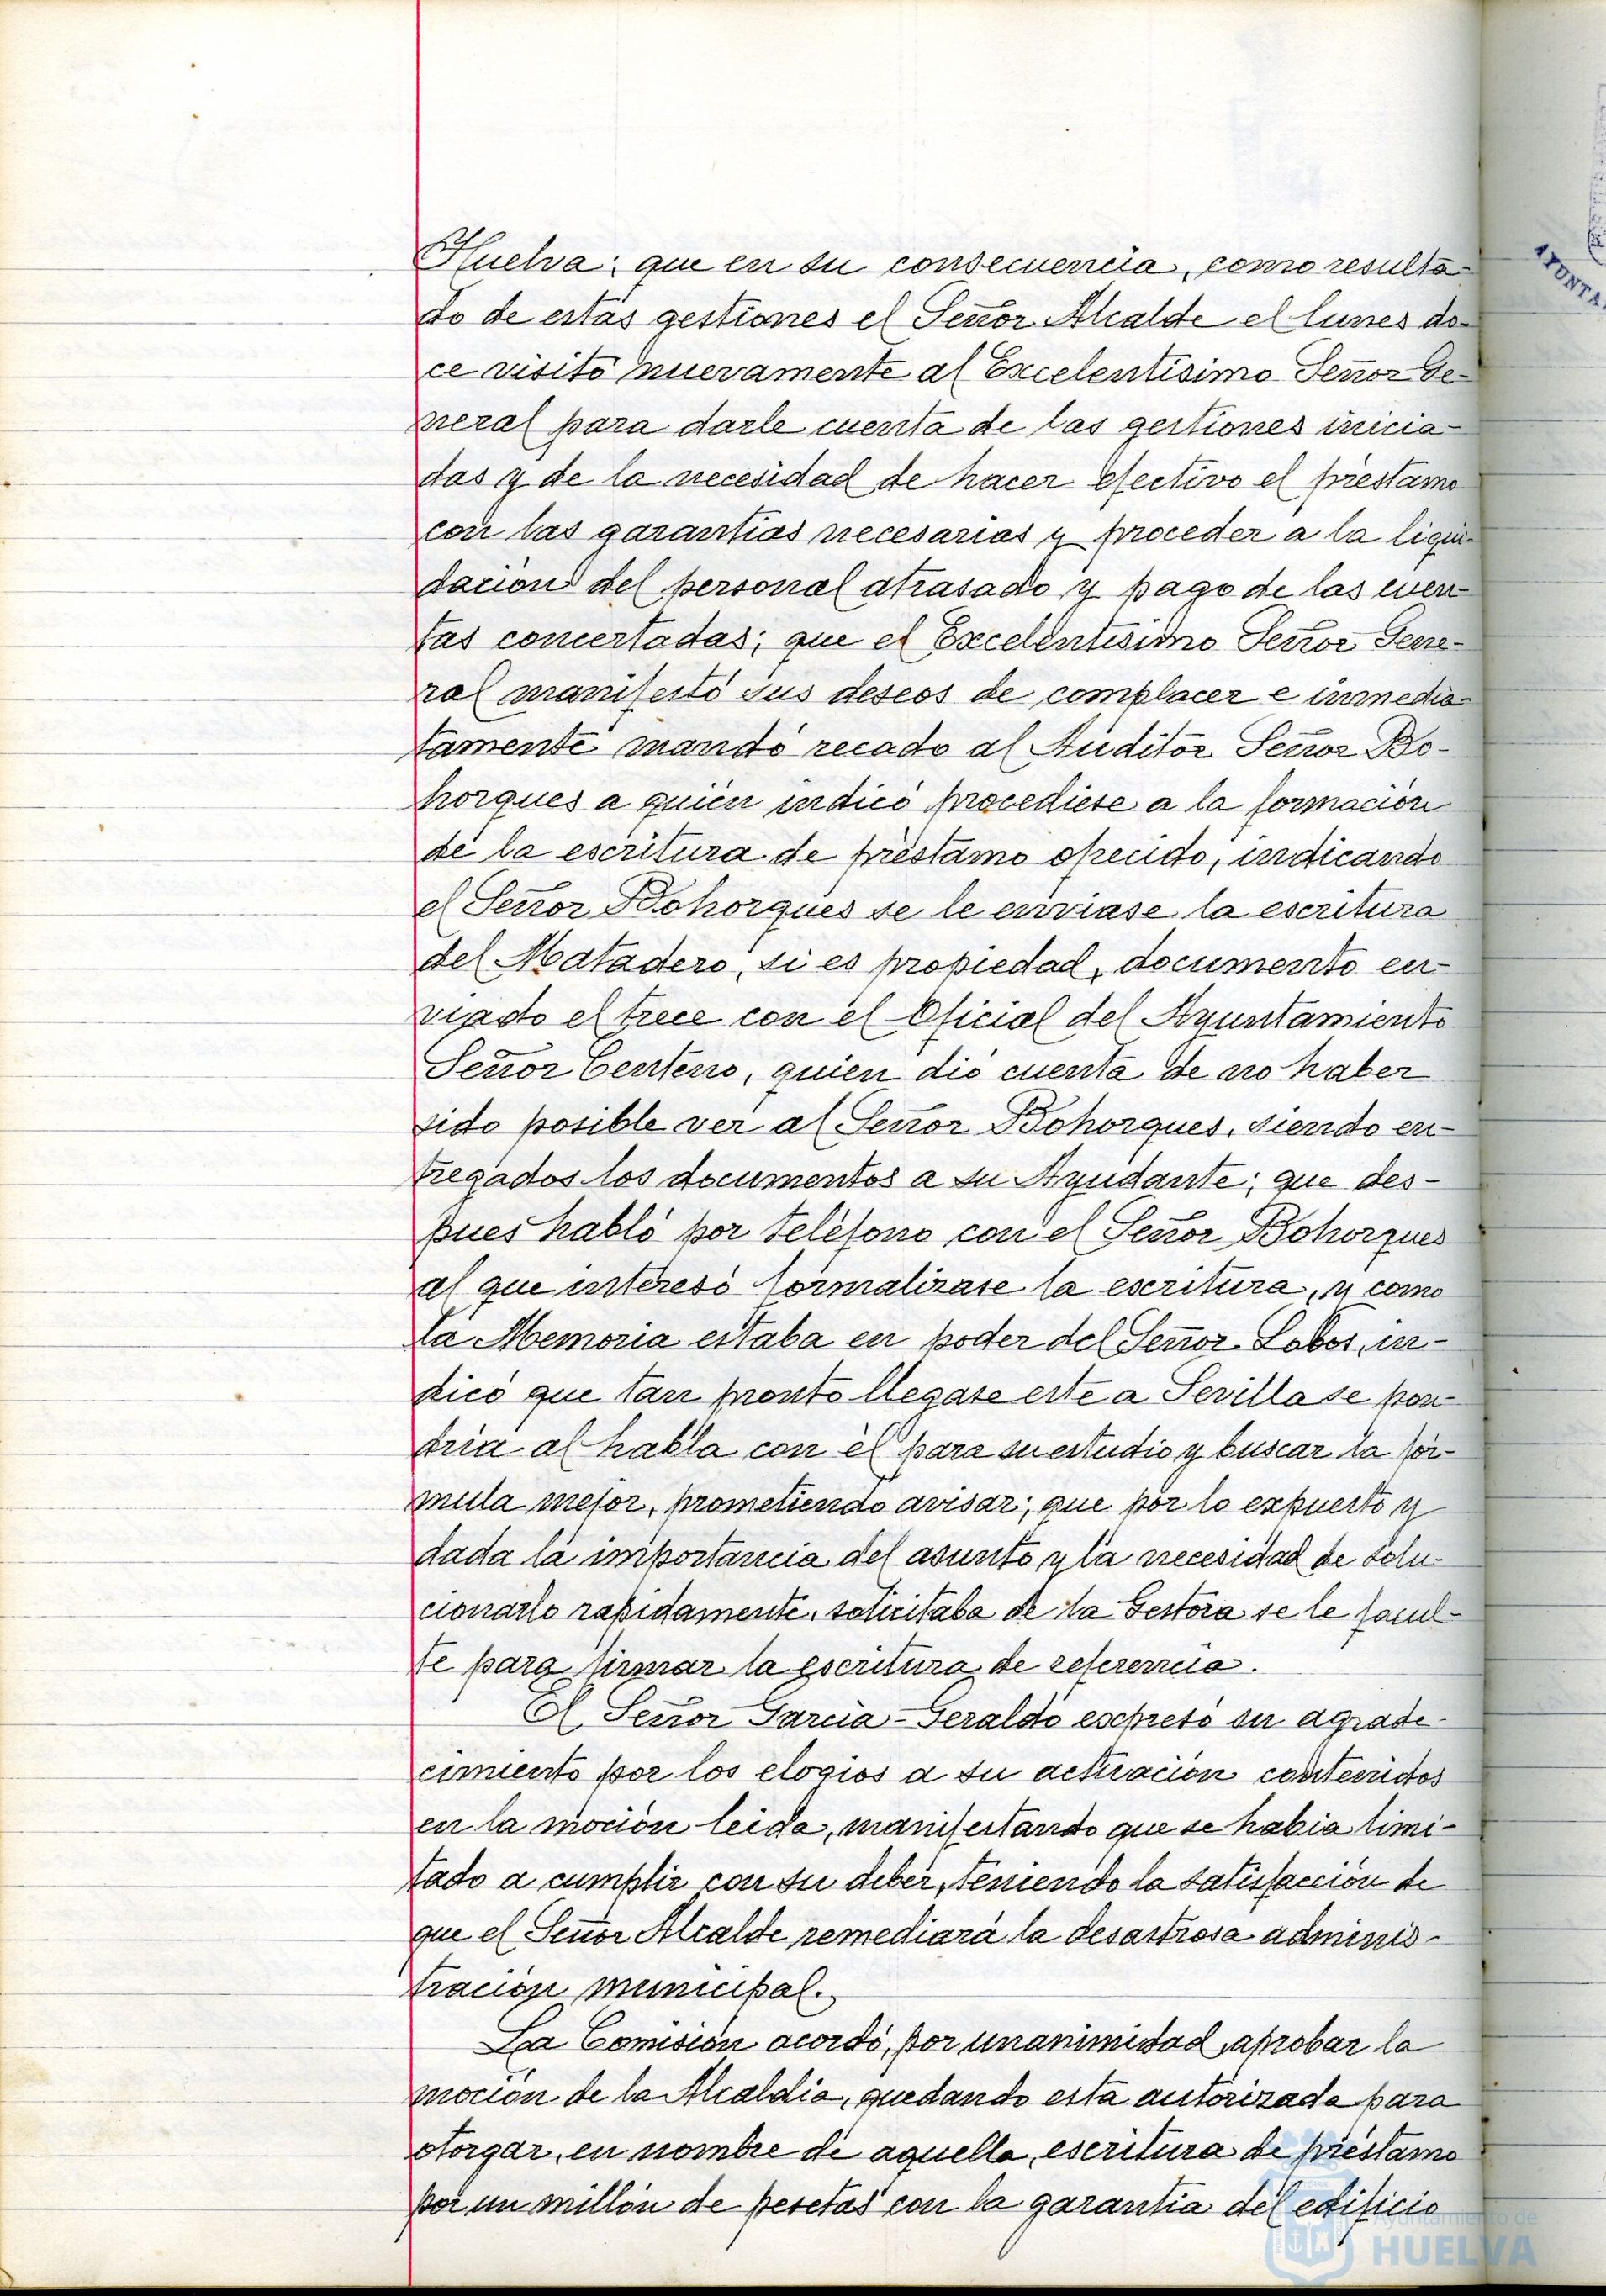 Huelva; que en su consecuencia, como resulta-
do de estas gestiones el Señor Alcalde el lunes do-
ce visitó nuevamente al Excelentísimo Señor Ge-
neral para darle cuenta de las gestiones inicia-
das y de la necesidad de hacer efectivo el préstamo
con las garantías necesarias y proceder a la liqui-
dación del personal atrasado y pago de las cuen-
tas concertadas; que el Excelentísimo Señor Gene-
ral manifestó sus deseos de complacer e inmedia-
tamente mandó recado al Auditor Señor Bo-
horques a quien indicó procediese a la formación
de la escritura de préstamo ofrecido, indicando
el Señor Bohorques se le enviase la escritura
del Matadero, si es propiedad, documento en-
viado el trece con el Oficial del Ayuntamiento
Señor Centeno, quien dió cuenta de no haber
sido posible ver al Señor Bohorques, siendo en-
tregados los documentos a su Ayudante; que des-
pues habló por teléfono con el Señor Bohorques
al que interesó formalizase la escritura, y como
la Memoria estaba en poder del Señor Lobos, in-
dicó que tan pronto llegase este a Sevilla se pon-
dria al habla con él para su estudio y buscar la fór-
mula mejor, prometiendo avisar; que por lo expuesto y
dada la importancia del asunto y la necesidad de solu-
cionarlo rapidamente, solicitaba de la Gestora se le facul-
te para firmar la escritura de referencia.
El Señor Garcia-Geraldo expresó su agrade-
cimiento por los elogios a su actuación contenidos
en la moción leida, manifestando que se habia limi-
tado a cumplir con su deber, teniendo la satisfacción de
que el Señor Alcalde remediará la desastrosa adminis-
tración municipal.
La Comisión acordó, por unanimidad, aprobar la
moción de la Alcaldia, quedando esta autorizada para
otorgar, en nombre de aquella, escritura de préstamo
por un millón de pesetas con la garantia del edificio
AYUNTA
Ayuntamiento de
HUELVA